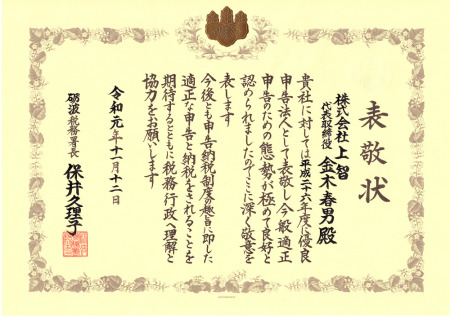 表敬状
株式会社上智
代表取締役 金木春男殿
貴社に対しては平成二十六年度に優良
申告法人として表敬し今般適正
申告のための態勢が極めて良好と
認められましたのでここに深く敬意を
表します
今後とも申告納税制度の趣旨に即した
適正な申告と納税をされることを
期待するとともに税務行政へ理解と
協力をお願いします
令和元年十一月十二日
砺波税務署長 保井久理子